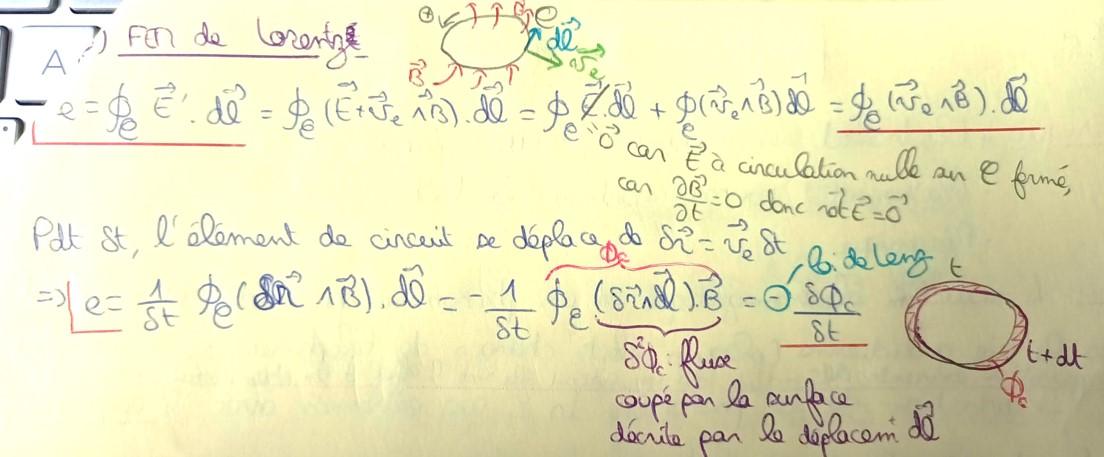 A
) FEM de Lorentz
⊕ C dl⃗
B⃗ v⃗ₑ
e = ∮_C E⃗'. dl⃗ = ∮_C (E⃗+v⃗ₑ∧B⃗). dl⃗ = ∮_C E⃗.dl⃗ + ∮_C (v⃗ₑ∧B⃗)dl⃗ = ∮_C (v⃗ₑ∧B⃗). dl⃗
"0⃗ car E⃗ à circulation nulle sur C fermé,
car ∂B⃗/∂t = 0 donc rot E⃗ = 0⃗
Pdt δt, l'élément de circuit se déplace de δr⃗ = v⃗ₑ δt
ϕc loi de Lenz t
=> e = 1/δt ∮_C (δr⃗ ∧B⃗). dl⃗ = - 1/δt ∮_C (δr⃗∧dl⃗).B⃗ = - δϕc/δt
t+dt
δ²ϕc : flux ϕc
coupé par la surface
décrite par le déplacem dl⃗